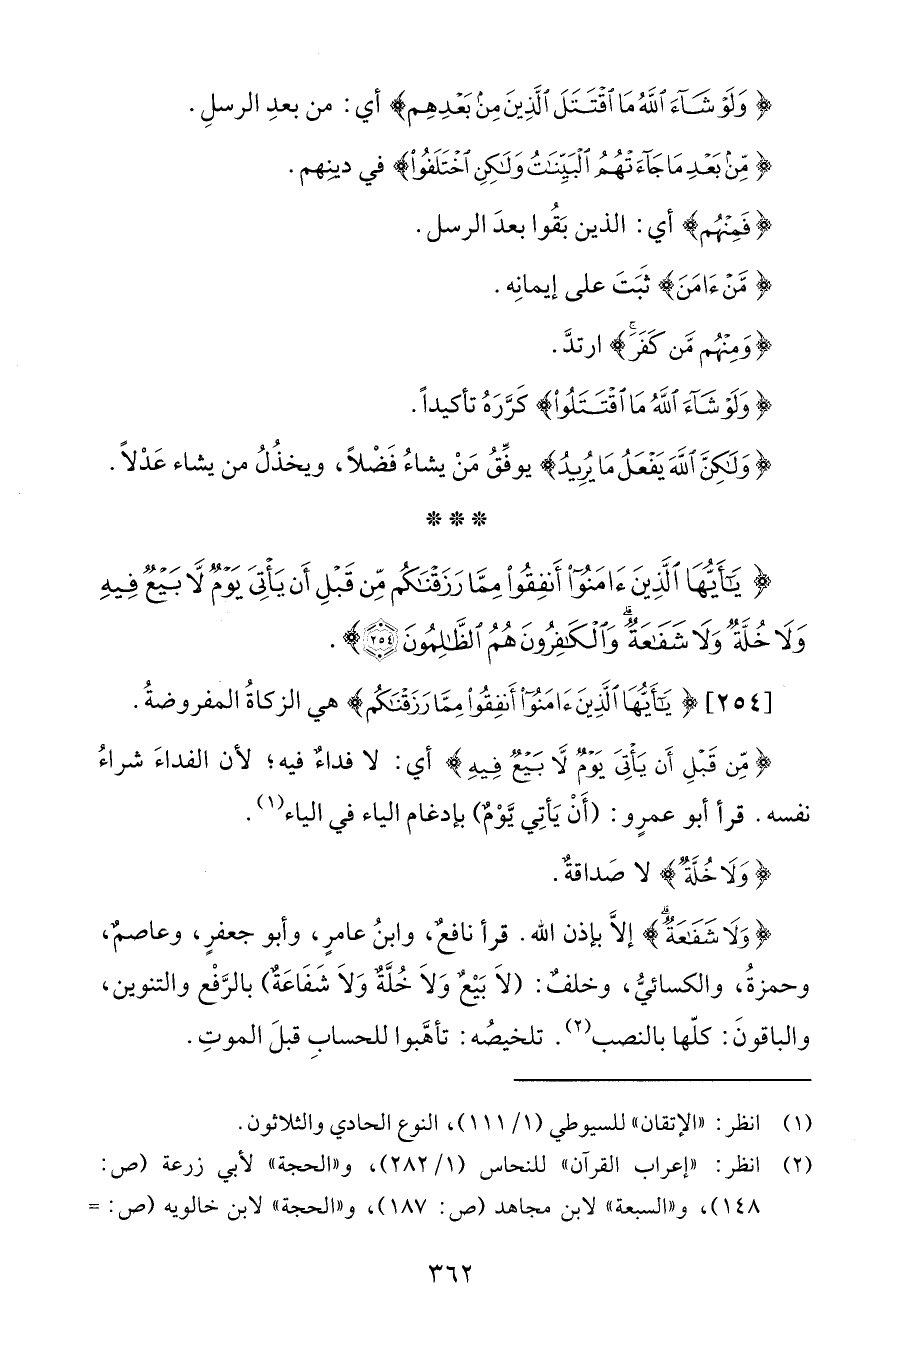 ﴿ وَلَوْ شَآءَ ٱللَّهُ مَا ٱقْتَتَلَ ٱلَّذِينَ مِنۢ بَعْدِهِم﴾ أي: من بعدِ الرسلِ.
﴿ مِّنۢ بَعْدِ مَا جَآءَتْهُمُ ٱلْبَيِّنَٰتُ وَلَٰكِنِ ٱخْتَلَفُوا۟﴾ في دينِهم.
﴿ فَمِنْهُم﴾ أي: الذين بَقُوا بعدَ الرسل.
﴿ مَّنْ ءَامَنَ﴾ ثَبَتَ على إيمانِه.
﴿وَمِنْهُم مَّن كَفَرَۚ﴾ ارتدَّ.
﴿ وَلَوْ شَآءَ ٱللَّهُ مَا ٱقْتَتَلُوا۟﴾ كَرَّرَهُ تأكيداً.
﴿ وَلَٰكِنَّ ٱللَّهَ يَفْعَلُ مَا يُرِيدُ﴾ يوفِّقُ مَنْ يشاءُ فَضْلاً، ويخذُلُ من يشاء عَدْلاً.
* * *
﴿ يَٰٓأَيُّهَا ٱلَّذِينَ ءَامَنُوٓا۟ أَنفِقُوا۟ مِمَّا رَزَقْنَٰكُم مِّن قَبْلِ أَن يَأْتِىَ يَوْمٌ لَّا بَيْعٌ فِيهِ
وَلَا خُلَّةٌ وَلَا شَفَٰعَةٌۗ وَٱلْكَٰفِرُونَ هُمُ ٱلظَّٰلِمُونَ ٢٥٤﴾.
[٢٥٤] ﴿ يَٰٓأَيُّهَا ٱلَّذِينَ ءَامَنُوٓا۟ أَنفِقُوا۟ مِمَّا رَزَقْنَٰكُم﴾ هي الزكاةُ المفروضةُ.
﴿مِّن قَبْلِ أَن يَأْتِىَ يَوْمٌ لَّا بَيْعٌ فِيهِ﴾ أي: لا فداءٌ فيه؛ لأن الفداءَ شراءُ
نفسه. قرأ أبو عمرٍو: (أَنْ يَأتِي يَّوْمٌ) بإدغام الياء في الياء(١).
﴿ وَلَا خُلَّةٌ﴾ لا صَداقةٌ.
﴿وَلَا شَفَٰعَةٌۗ﴾ إلاَّ بإذن الله. قرأ نافعٌ، وابنُ عامرٍ، وأبو جعفرٍ، وعاصمٌ،
وحمزةُ، والكسائيُّ، وخلفٌ: (لاَ بَيْعٌ وَلاَ خُلَّةٌ وَلاَ شَفَاعَةٌ) بالرَّفْع والتنوين،
والباقونَ: كلّها بالنصب(٢). تلخيصُه: تأهَّبوا للحسابِ قبلَ الموتِ.
(١) انظر: «الإتقان» للسيوطي (١/ ١١١)، النوع الحادي والثلاثون.
(٢) انظر: «إعراب القرآن» للنحاس (١/ ٢٨٢)، و«الحجة» لأبي زرعة (ص:
١٤٨)، و«السبعة» لابن مجاهد (ص: ١٨٧)، و«الحجة» لابن خالويه (ص: =
٣٦٢